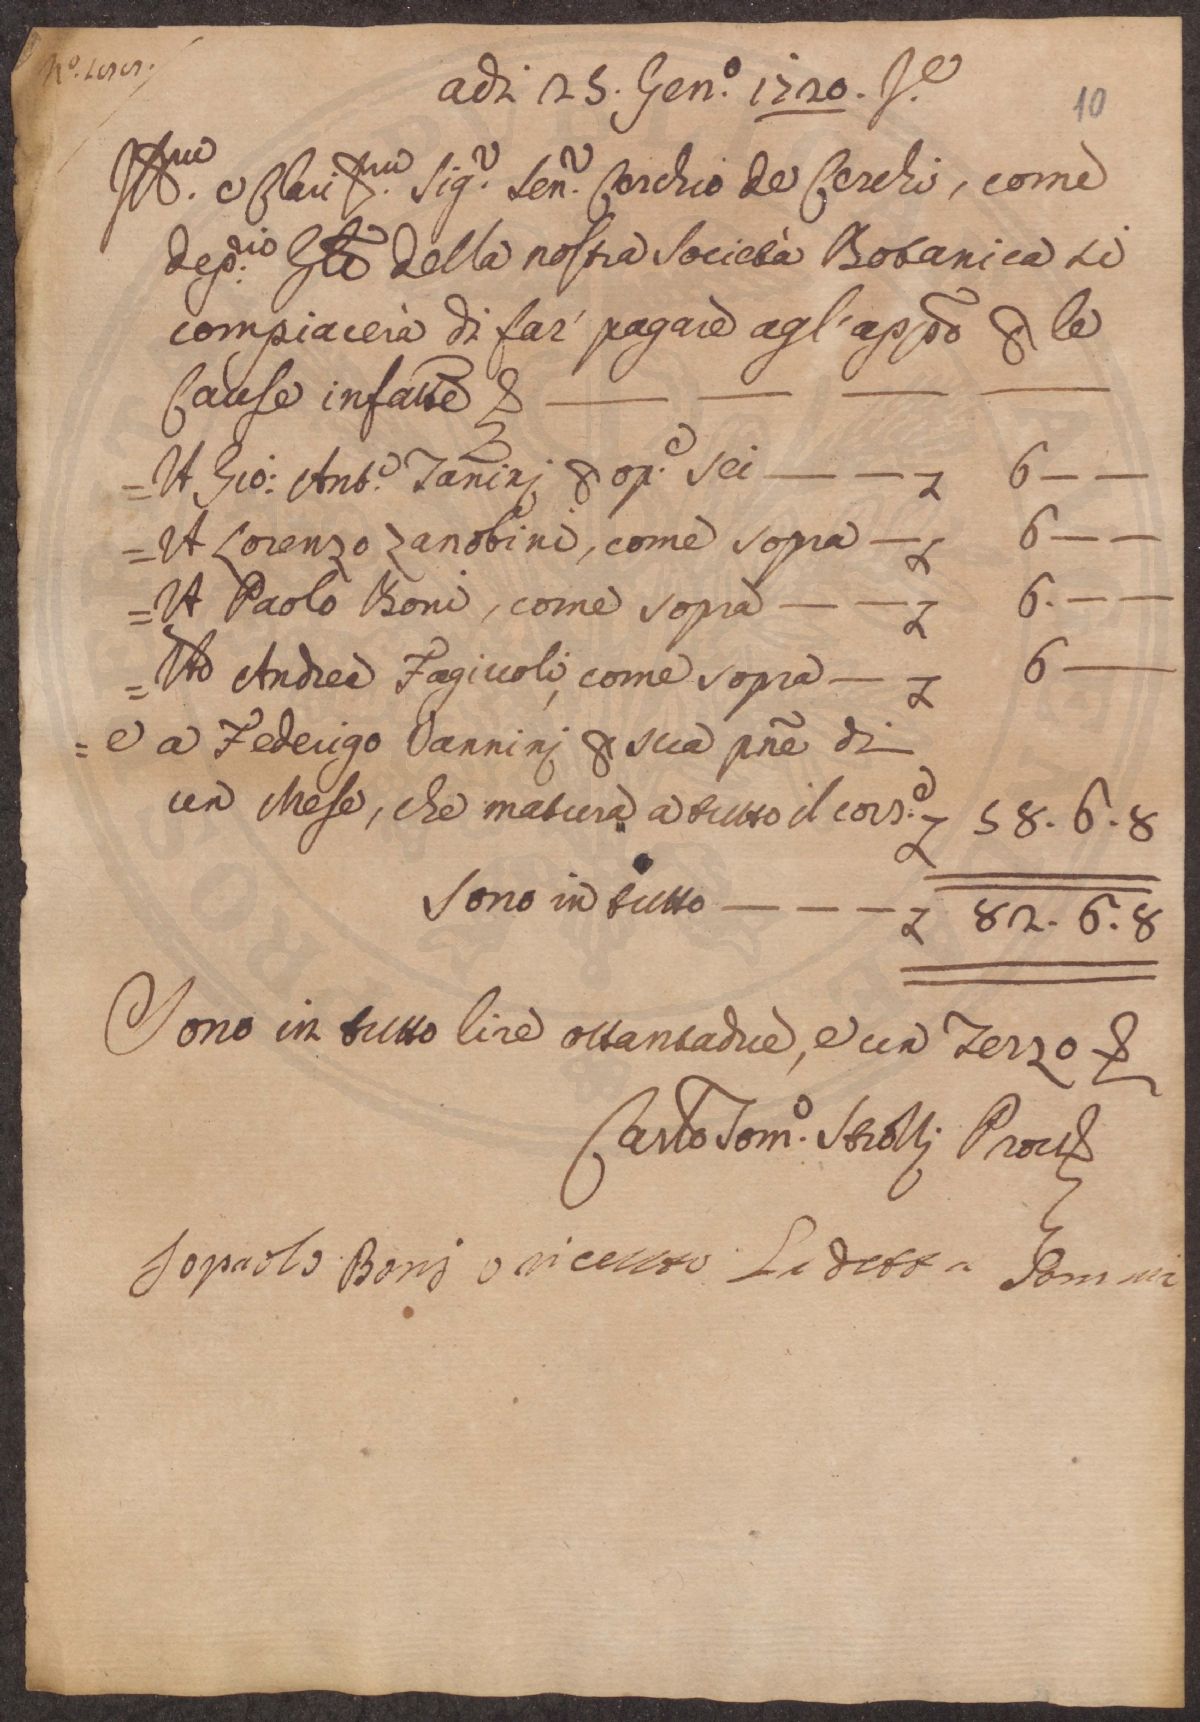 adi 25. Gen.º 1720. J.e
10
Ill.mo e Clariss.mo Sig.r Sen.r Cerchio de Cerchi, come
dep.rio Gñle della nostra Società Botanica si
compiacerà di far' pagare agl'appõ p le
Cause infatte
= A Gio: Ant.o Zaninj p op.e sei — — £ 6 — —
= A Lorenzo Zanobini, come sopra — £ 6 — —
= A Paolo Boni, come sopra — — £ 6. — —
= Ad Andrea Fagiuoli, come sopra — £ 6 —
= e a Federigo Vanninj p sua pñe di
un Mese, che matura a tutto il corr.e £ 58. 6. 8
Sono in tutto — — — — £ 82. 6. 8
Sono in tutto lire ottantadue, e un Terzo
Carlo Tom.o Strozzj Prov.
Io paolo Bonj o riceuto La detta Somma